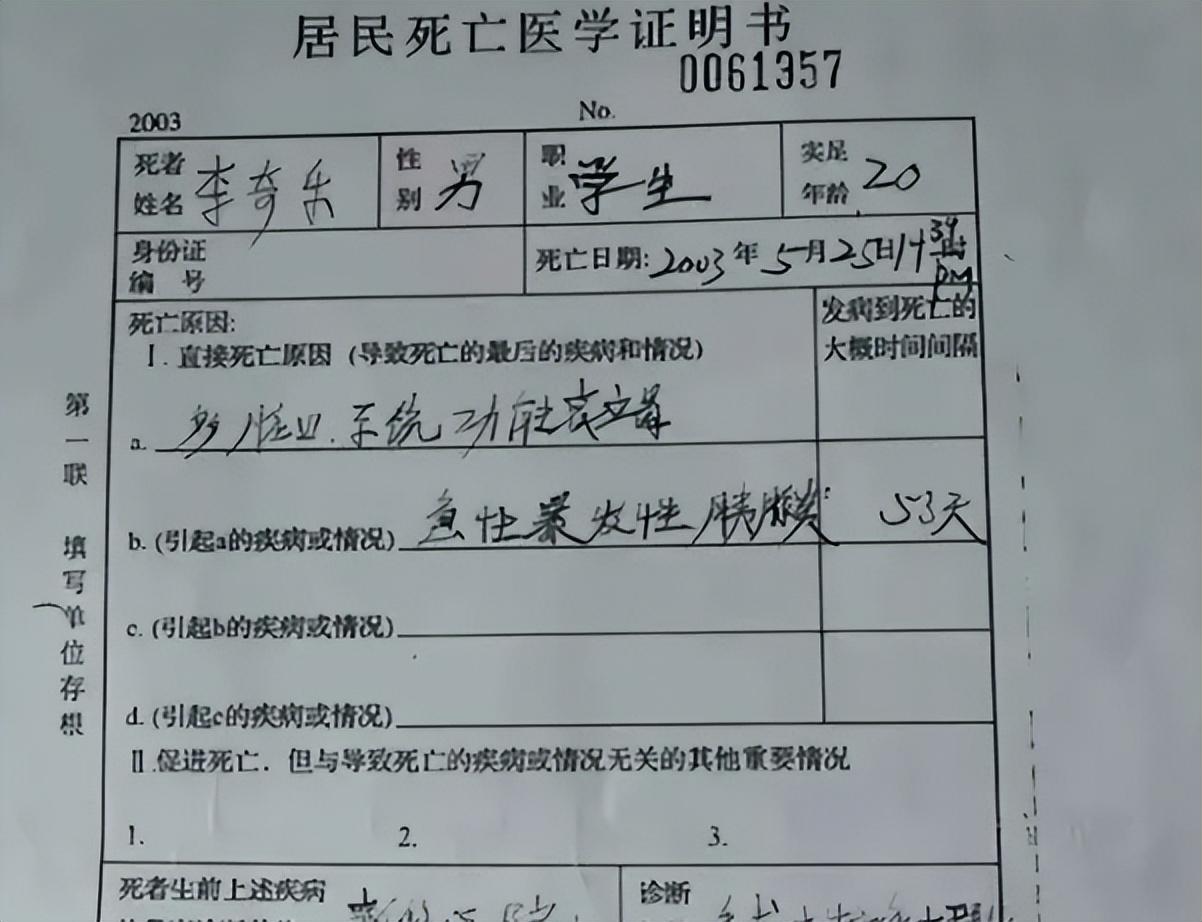 居民死亡医学证明书
0061357
2003 No.
死者姓名 李奇乐 性别 男 职业 学生 实足年龄 20
身份证编号 死亡日期:2003年5月25日14时39 pm
死亡原因: 发病到死亡的大概时间间隔
Ⅰ.直接死亡原因(导致死亡的最后的疾病和情况)
a. 多脏口.系统功能衰竭
b.(引起a的疾病或情况) 急性暴发性胰腺炎 53天
c.(引起b的疾病或情况)
d.(引起c的疾病或情况)
Ⅱ.促进死亡.但与导致死亡的疾病或情况无关的其他重要情况
1. 2. 3.
死者生前上述疾病 诊断
第一联 填写单位存根